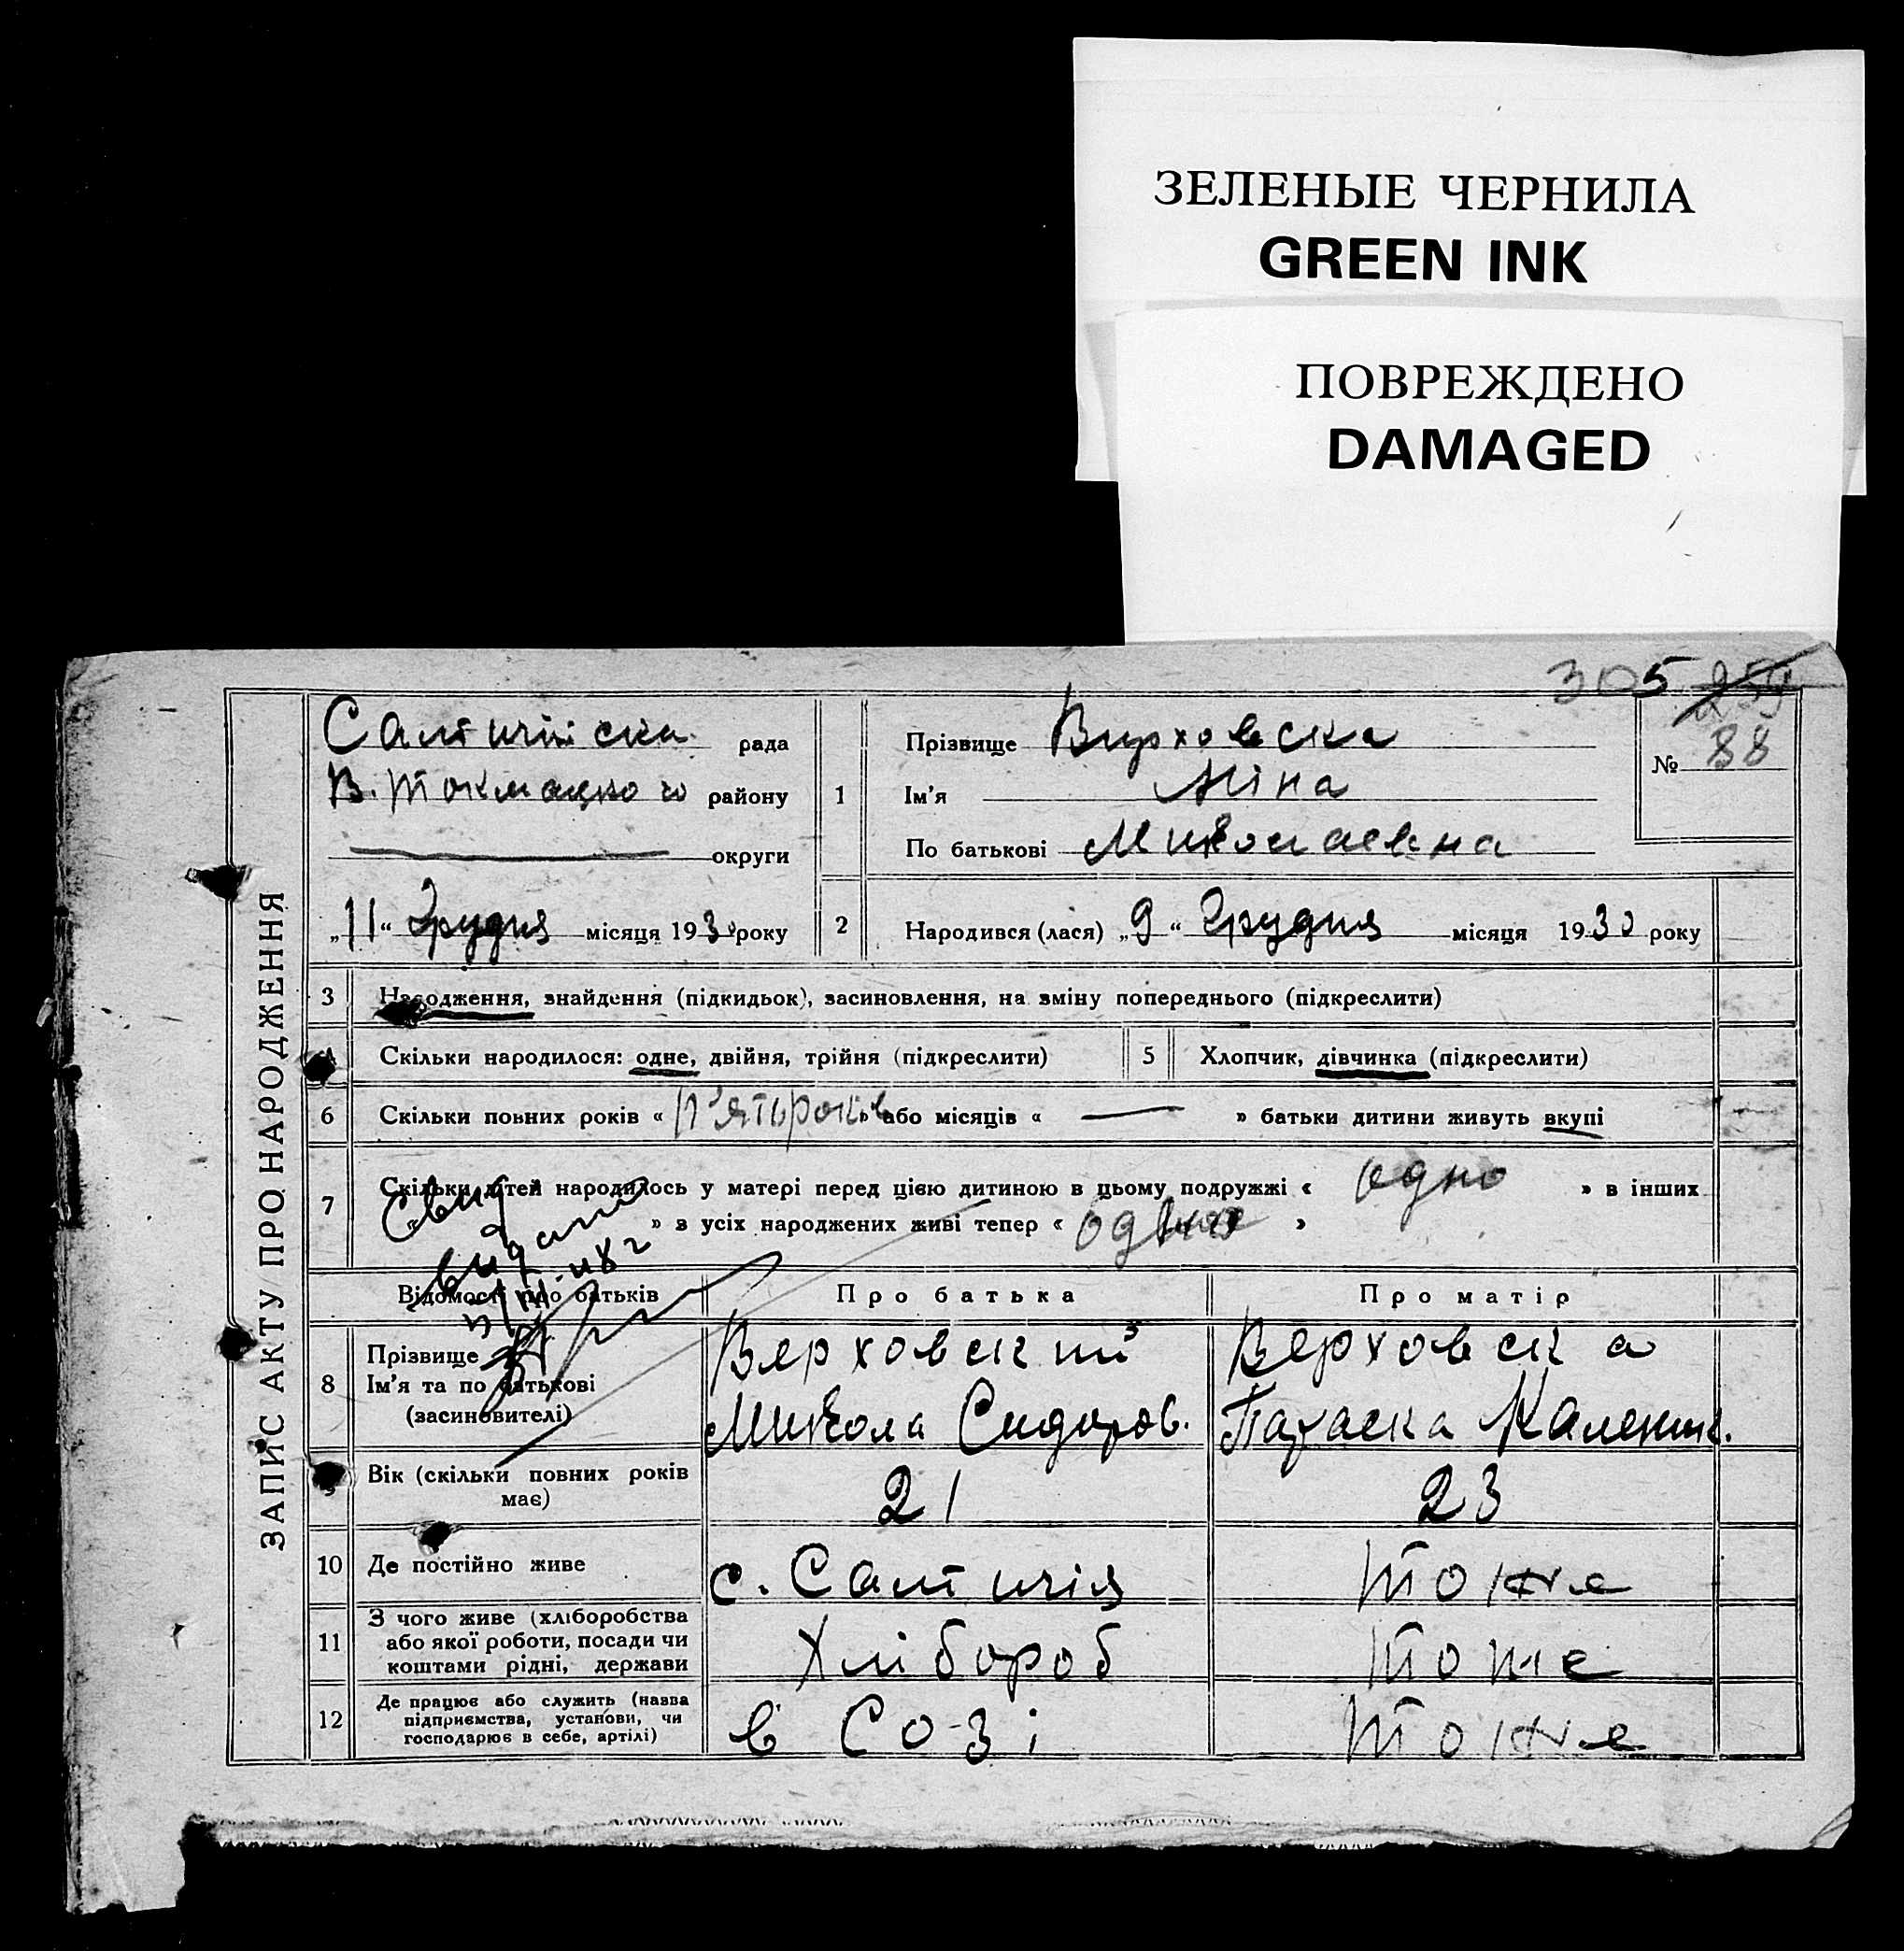 ЗЕЛЕНЫЕ ЧЕРНИЛА
GREEN INK
ПОВРЕЖДЕНО
DAMAGED
305 259
ЗАПИС АКТУ ПРО НАРОДЖЕННЯ
Салтичійська рада
В. Токмацкого району
округи
„11“ Грудня місяця 1930 року
1
Прізвище Верховска
Ім'я Ніна
По батькові Миколаевна
№ 88
2
Народився (лася) „9“ Грудня місяця 1930 року
3 Народження, знайдення (підкидьок), засиновлення, на зміну попереднього (підкреслити)
4 Скільки народилося: одне, двійня, трійня (підкреслити)
5 Хлопчик, дівчинка (підкреслити)
6 Скільки повних років « п'ять рокiв » або місяців « — » батьки дитини живуть вкупі
7 Скільки дітей народилось у матері перед цією дитиною в цьому подружжі « одно » в інших
« » з усіх народжених живі тепер « одно »
Свид
видано
Відомості про батьків
Про батька
Про матір
8 Прізвище
Ім'я та по батькові
(засиновителі)
Верховский
Микола Сидоров.
Верховска
Параска Каленик.
9 Вік (скільки повних років
має)
21
23
10 Де постійно живе
с. Салтичія
тоже
11 З чого живе (хліборобства
або якої роботи, посади чи
коштами рідні, держави
Хлібороб
тоже
12 Де працює або служить (назва
підприємства, установи, чи
господарює в себе, артілі)
в Созі
тоже